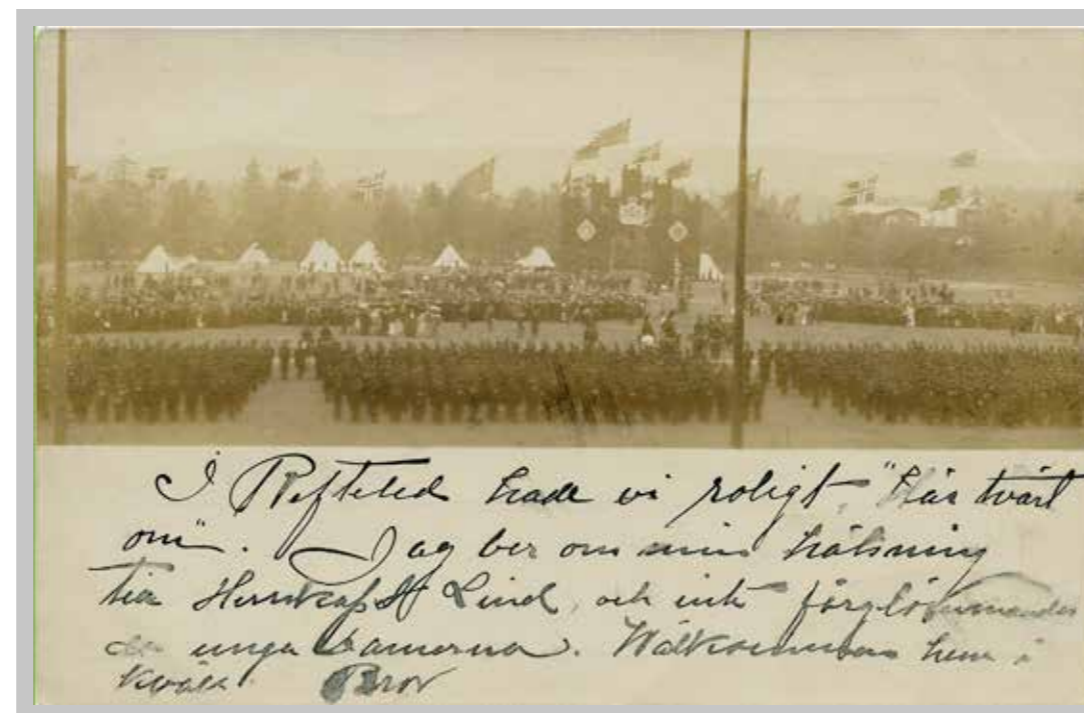 I Refteled hade vi roligt, "här tvärt
om". Jag ber om min hälsning
till Herrskapet Lind, och inte förglömmandes
de unga damerna. Wälkommen hem i
kwäll. Bror